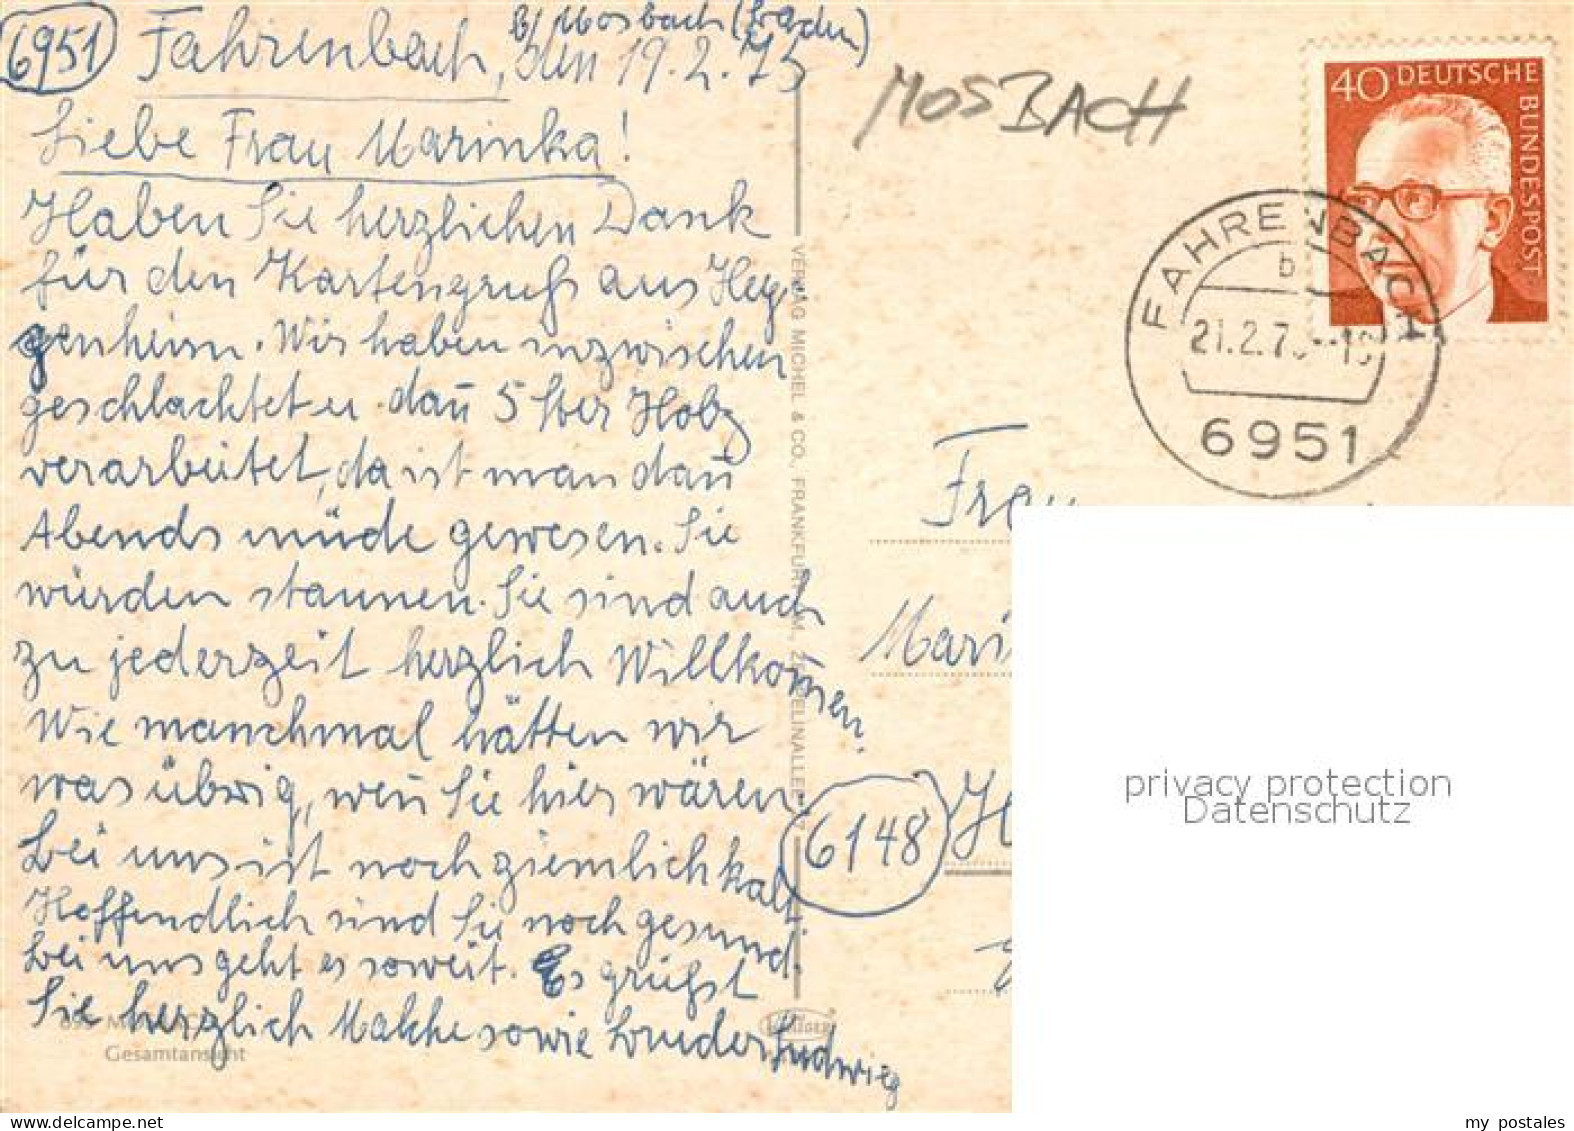 6951 Fahrenbach, den 19.2.75
b/ Mosbach (Baden)
Liebe Frau Marinka!
Haben Sie herzlichen Dank
für den Kartengruß aus Heg
genheim. Wir haben inzwischen
geschlachtet u. dan̄ 5 Ster Holz
verarbeitet, da ist man dan̄
Abends müde gewesen. Sie
würden staunen. Sie sind auch
zu jederzeit herzlich Willkom̄en.
Wie manchmal hätten wir
was übrig, wen̄ Sie hier wären.
Bei uns ist noch ziemlich kalt
Hoffendlich sind Sie noch gesund.
Bei uns geht es soweit. Es grüßt
Sie herzlich sowie Bruder Ludwieg
MOSBACH
40 DEUTSCHE BUNDESPOST
FAHRENBACH
b
21.2.7
6951
Frau
Mari
6148 H
VERLAG MICHEL & CO., FRANKFURT
Gesamtansicht
privacy protection
Datenschutz
my postales